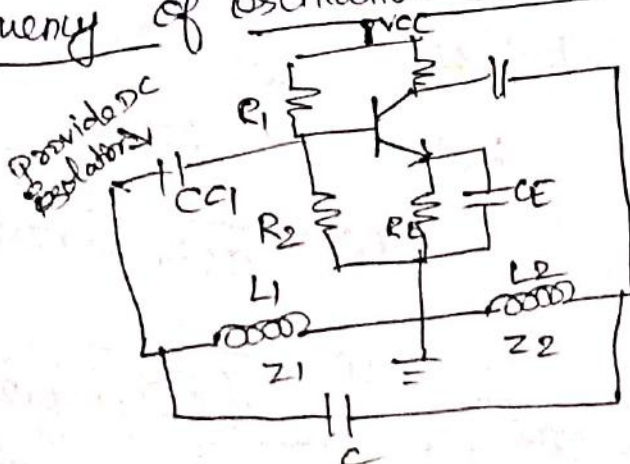 uency of oscillatio
VCC
Provide DC
isolation
R1
CC1
R2
RE
CE
L1
L2
Z1
Z2
C